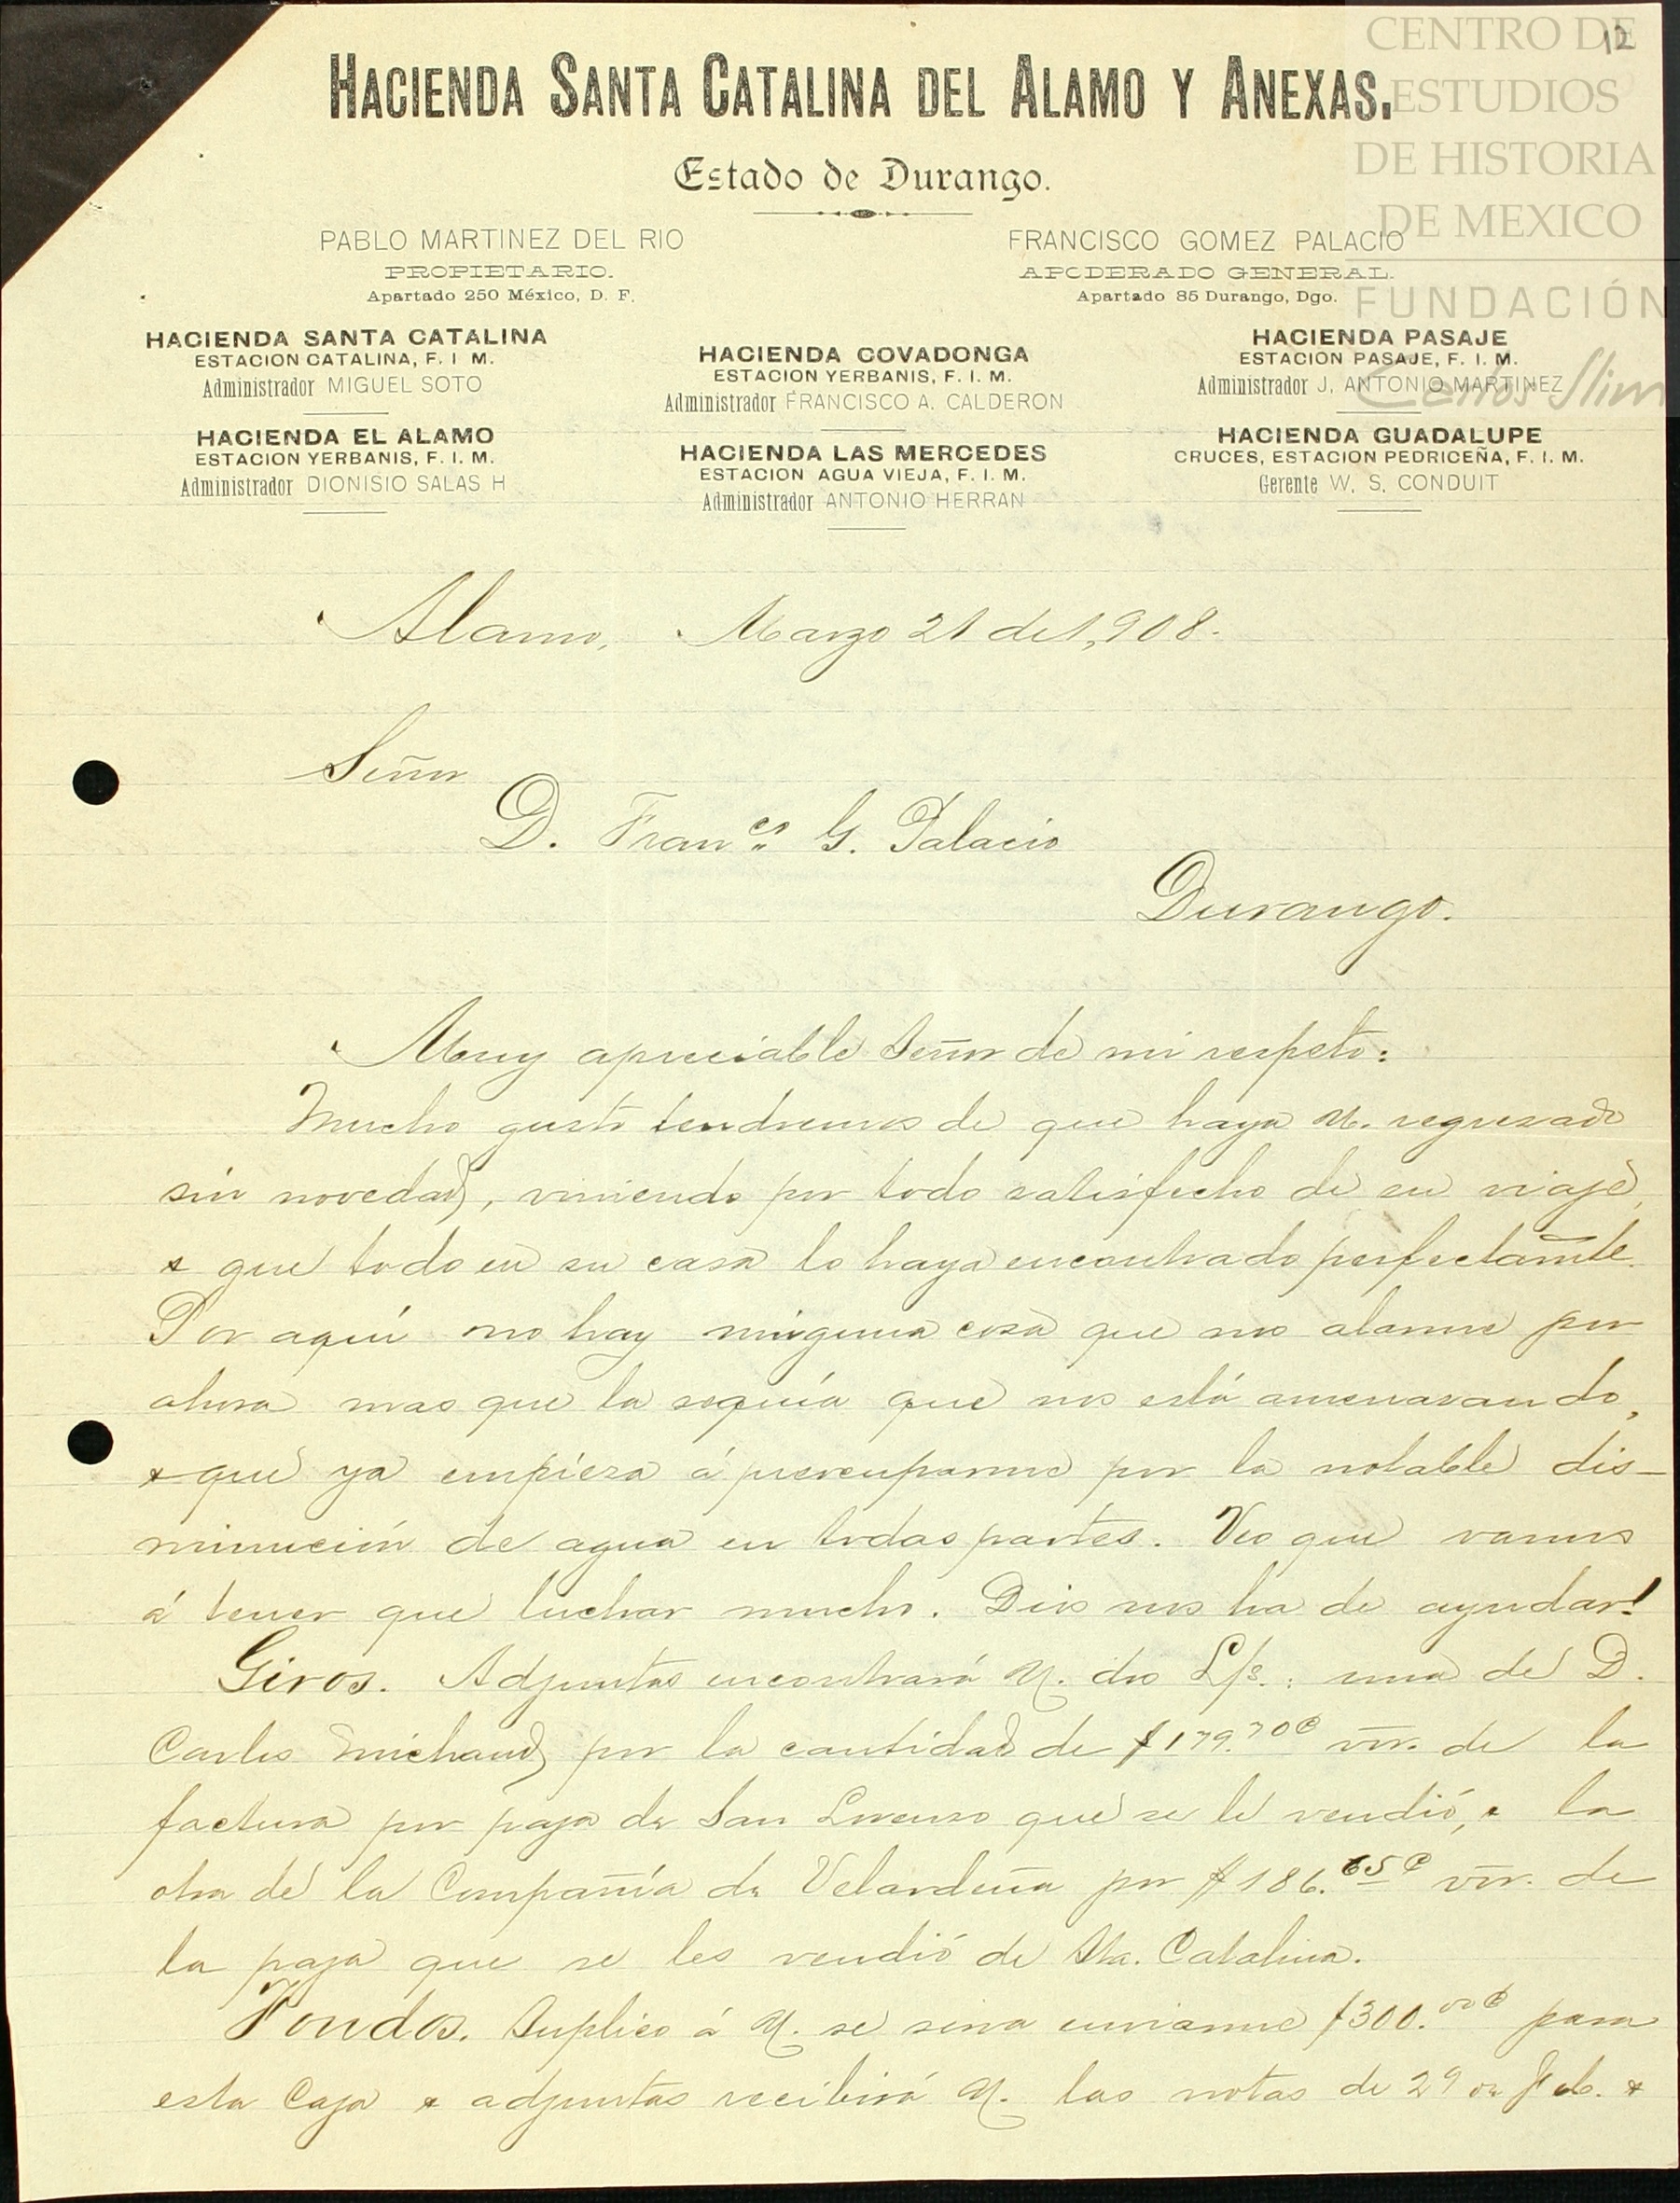 12
CENTRO DE
ESTUDIOS
DE HISTORIA
DE MEXICO
FUNDACIÓN
Carlos Slim
HACIENDA SANTA CATALINA DEL ALAMO Y ANEXAS.
Estado de Durango.
PABLO MARTINEZ DEL RIO
PROPIETARIO.
Apartado 250 México, D. F.
FRANCISCO GOMEZ PALACIO
APODERADO GENERAL.
Apartado 85 Durango, Dgo.
HACIENDA SANTA CATALINA
ESTACION CATALINA, F. I M.
Administrador MIGUEL SOTO
HACIENDA EL ALAMO
ESTACION YERBANIS, F. I. M.
Administrador DIONISIO SALAS H
HACIENDA COVADONGA
ESTACION YERBANIS, F. I. M.
Administrador FRANCISCO A. CALDERON
HACIENDA LAS MERCEDES
ESTACION AGUA VIEJA, F. I. M.
Administrador ANTONIO HERRAN
HACIENDA PASAJE
ESTACION PASAJE, F. I. M.
Administrador J. ANTONIO MARTINEZ
HACIENDA GUADALUPE
CRUCES, ESTACION PEDRICEÑA, F. I. M.
Gerente W. S. CONDUIT
Alamo, Marzo 21 de 1,908.
Señor
D. Franco. G. Palacio
Durango.
Muy apreciable Señor de mi respeto:
Mucho gusto tendremos de que haya U. regresado
sin novedad, viniendo por todo satisfecho de su viaje,
& que todo en su casa lo haya encontrado perfectamte.
Por aquí no hay ninguna cosa que nos alarme por
ahora mas que la sequía que nos está amenasando,
& que ya empieza á preocuparme por la notable dis-
minución de agua en todas partes. Veo que vamos
á tener que luchar mucho. Dios nos ha de ayudar!
Giros. Adjuntas encontrará U. dos L/s.: una de D.
Carlos Michaud por la cantidad de $179.70 c vr. de la
factura por paja de San Lorenzo que se le vendió, & la
otra de la Compañía de Velardeña por $186.65 c vr. de
la paja que se les vendió de Sta. Catalina.
Fondos. Suplico á U. se sirva enviarme $300.00 c para
esta Caja & adjuntas recibirá U. las notas de 29 de Feb. &